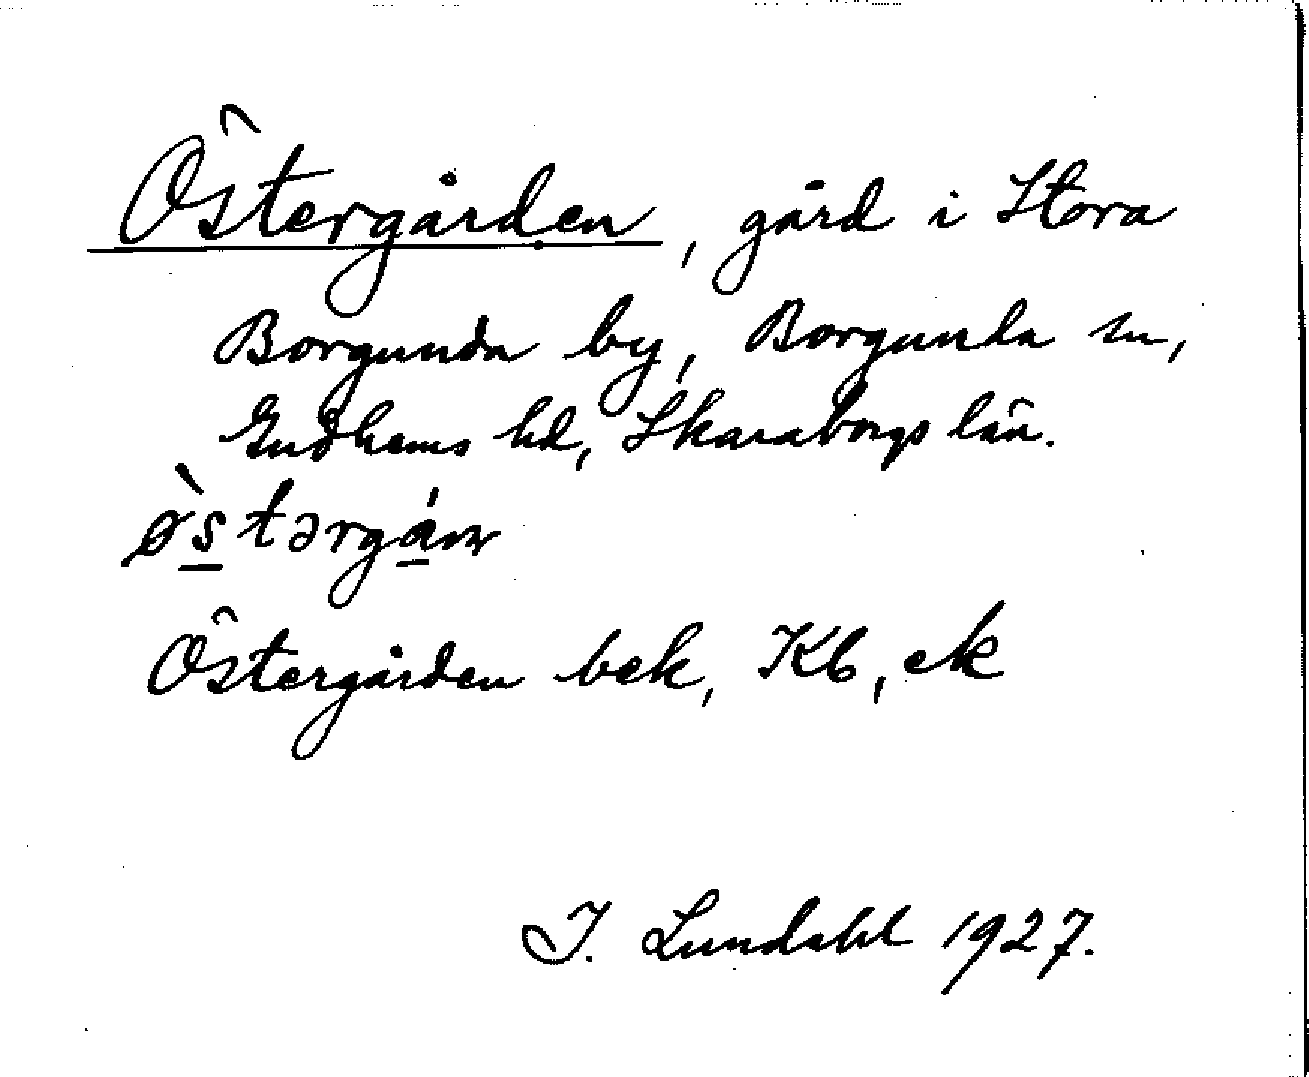 Östergården, gård i Stora
Borgunda by, Borgunda sn,
Gudhems hd, Skaraborgs län.
ø̀s̲tərgá̲ɳ
Östergården bek, Kb, ek
I. Lundahl 1927.